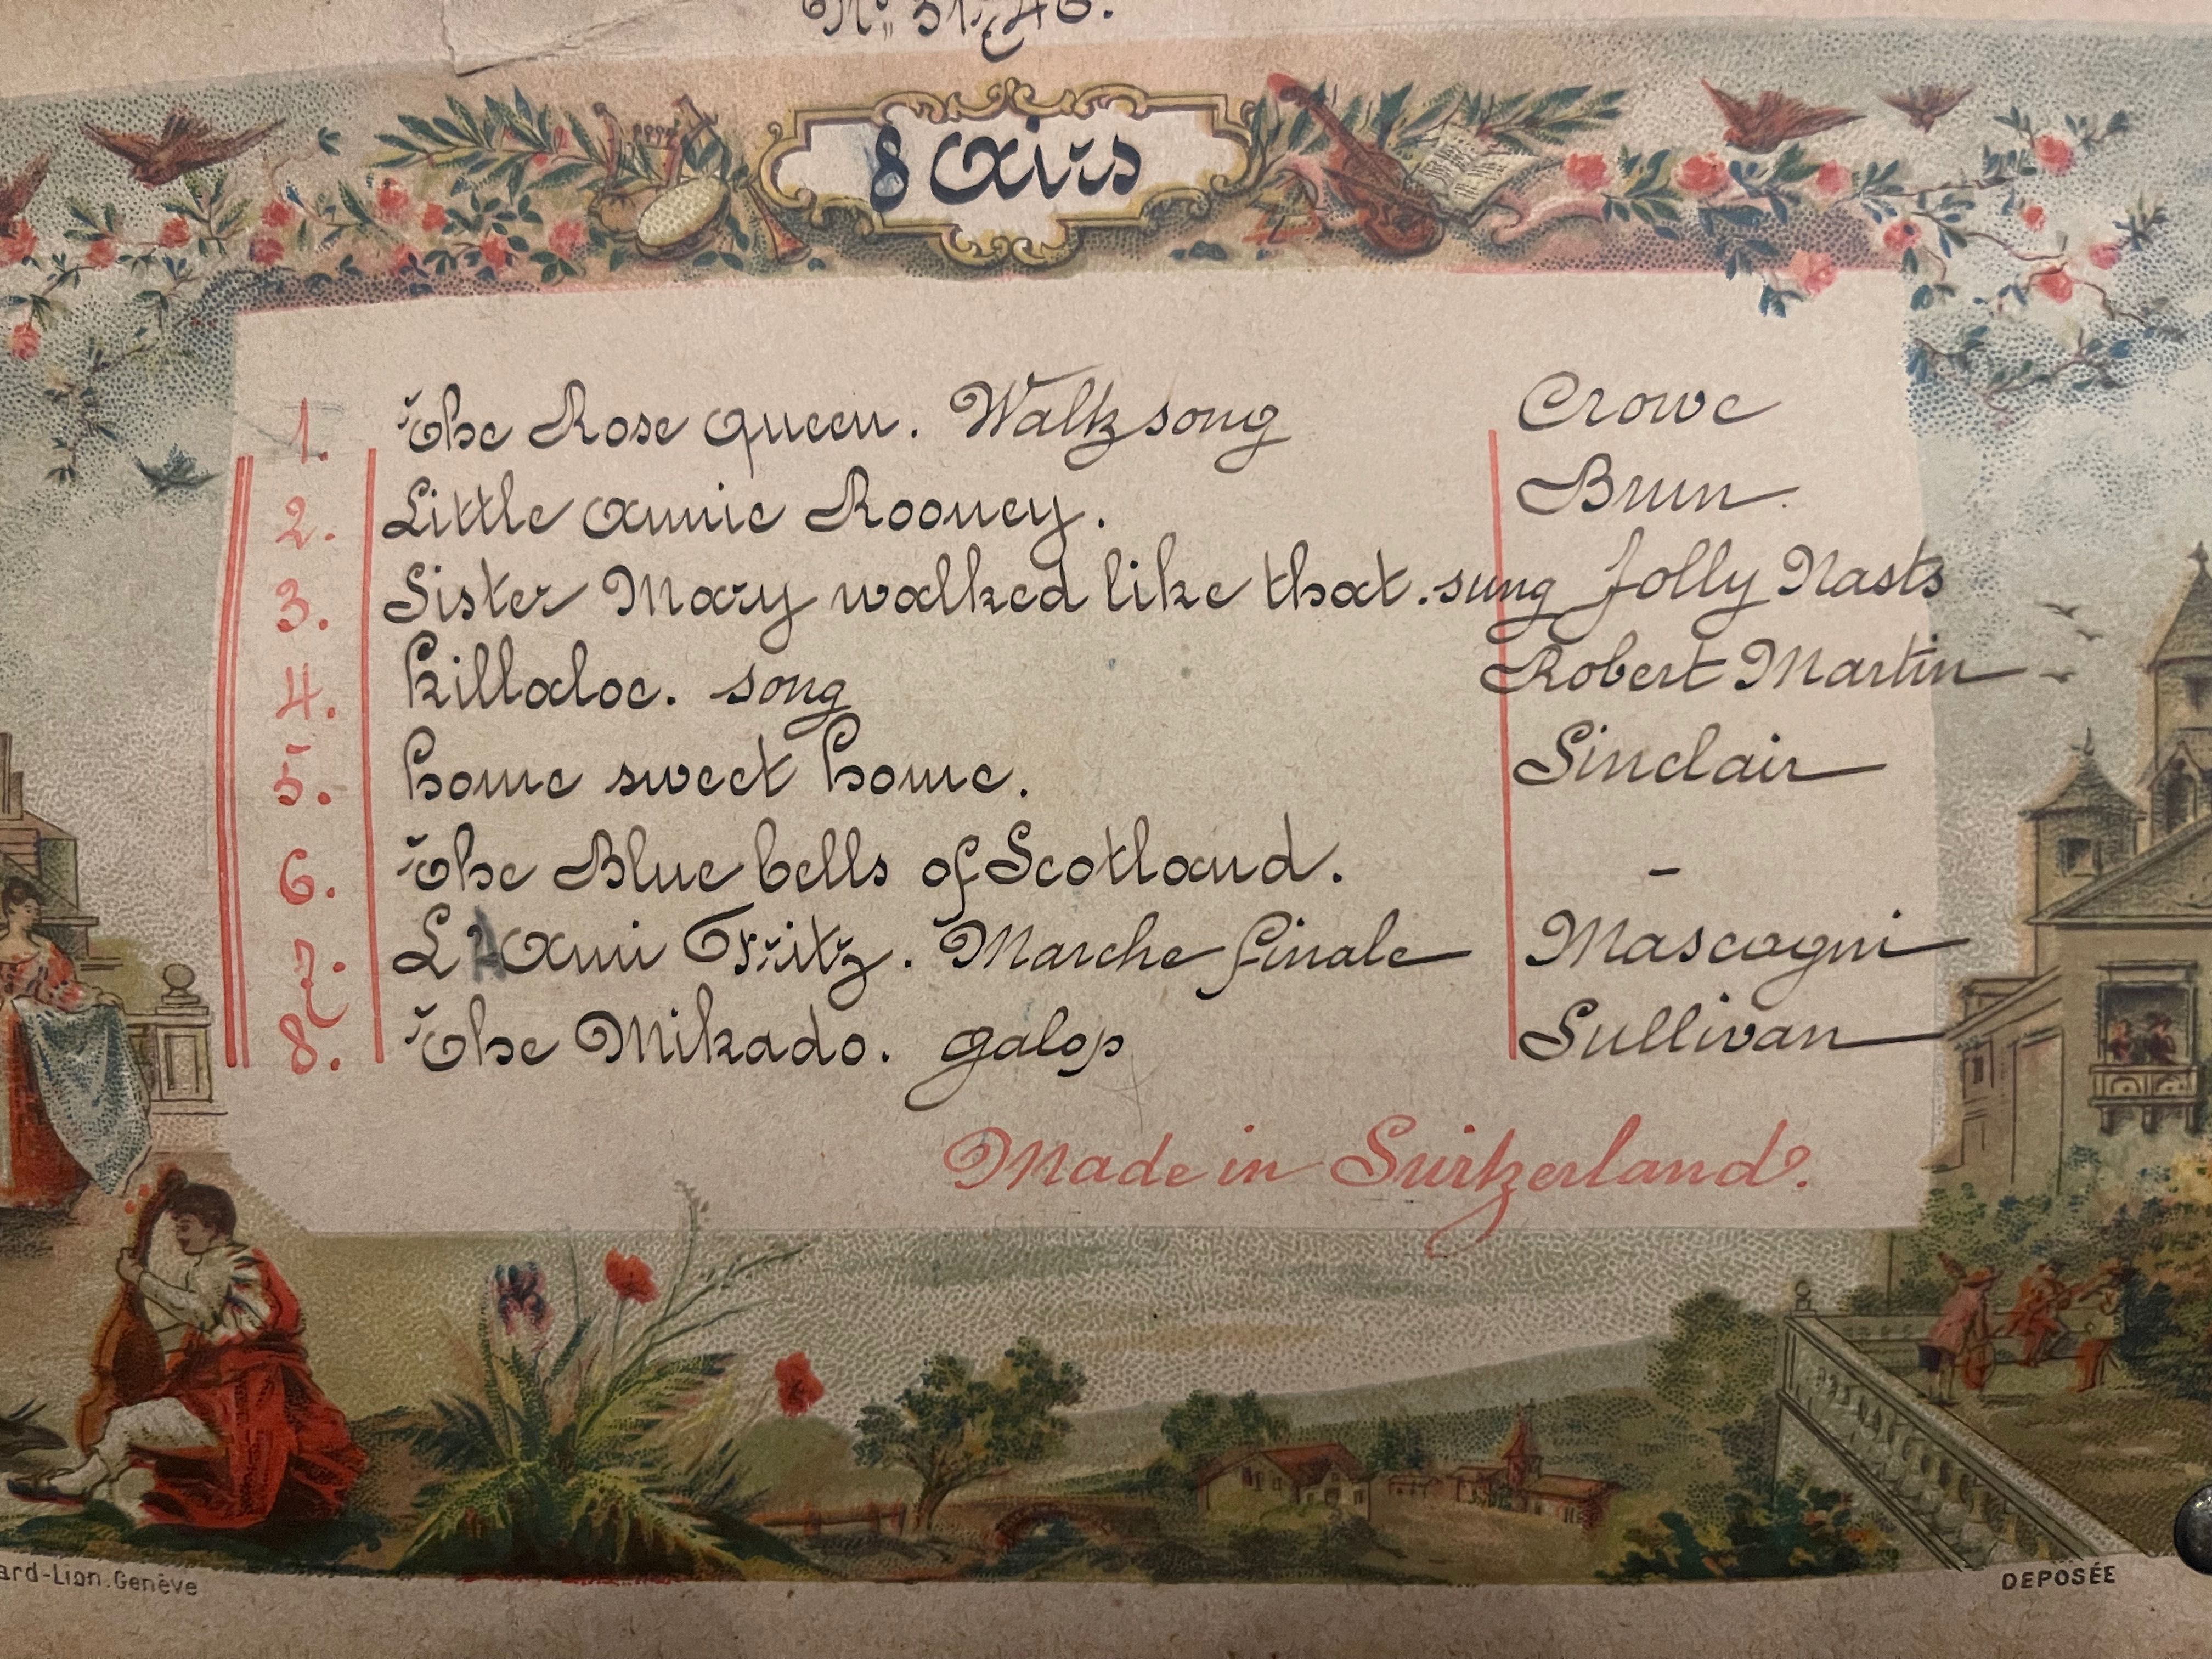 8 airs
1. The Rose queen. Waltz song Crowe
2. Little Annie Rooney. Brun.
3. Sister Mary walked like that. sung Jolly Nasts
4. Killaloe. song Robert Martin
5. home sweet home. Sinclair
6. The Blue bells of Scotland. –
7. L'Ami Fritz. Marche finale Mascagni
8. The Mikado. galop Sullivan
Made in Switzerland.
Genève
DEPOSÉE